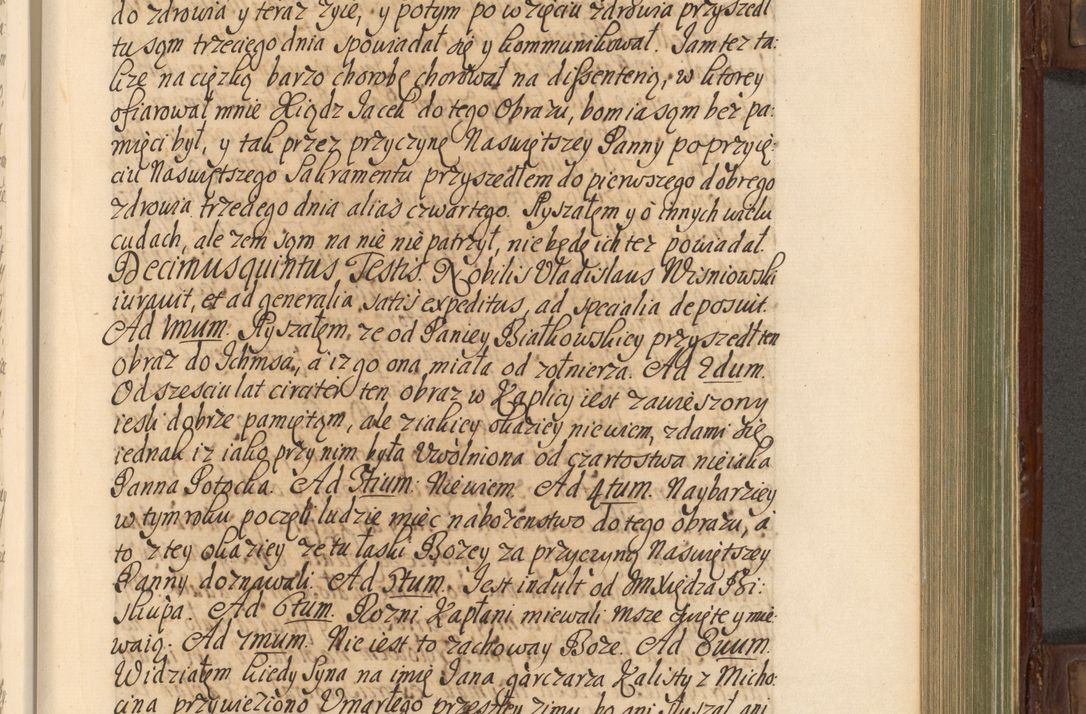 do zdrowia y teraz żyie, y potym po wzięciu zdrowia przyszedł
tu sąm trzeciego dnia spowiadał się y kommunikował. Jam też ta:
kże na cięzką barzo chorobę chorował na dissenterią, w ktorey
ofiarował mnie Xiądz Jacek do tego Obrazu, bom ia sąm bez pa:
mięci był, y tak przez przyczynę Naswiętszey Panny po przyię:
ciu Naswiętszego Sakramentu przyszedłem do pierwszego dobrego
zdrowia trzeciego dnia alias czwartego. Słyszałem y o innych wielu
cudach, ale zem sąm na nie nie patrzył, nie będę ich tez powiadał.
Decimusquintus Testis. Nobilis Vladislaus Wisniowski
iuravit, et ad generalia satis expeditus, ad specialia deposuit.
Ad 1mum. Słyszałem, ze od Paniey Białkowskiey przyszedł ten
obraz do Ichmsa, a iz go ona miała od zołnierza. Ad 2dum.
Od szesciu lat circiter ten obraz w Kaplicy iest zawieszony
iesli dobrze pamiętąm, ale z iakiey okaziey niewiem, zdami się
iednak iz iako przy nim była Uwolniona od czartostwa nieiaka
Panna Potocka. Ad 3tium. Niewiem. Ad 4tum. Naybarziey
w tym roku poczęli ludzie mieć nabożenstwo do tego obrazu, a
to z tey okaziey ze tu łaski Bozey za przyczyną Naswiętszey
Panny doznawali. Ad 5tum. Jest indult od Jm Xiędza Bi:
skupa. Ad 6tum. Rozni Kapłani miewali msze święte y mie:
waią. Ad 7mum. Nie iest to zachoway Boże. Ad 8vum.
Widziałem kiedy syna na imię Jana garczarza Kalisty z Micho:
cina przywieziono Umarłego przeszłey zimy, bo ani słuszał ani